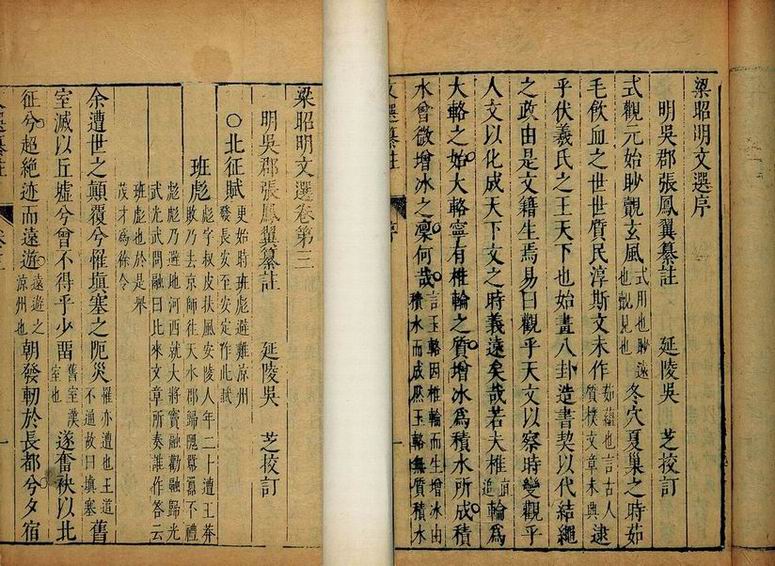 梁昭明文選序
明吳郡張鳳翼纂註 延陵吳 芝校訂
式觀元始眇覿玄風式用也眇遠也覿見也冬穴夏巢之時茹
毛飲血之世世質民淳斯文未作茹蘊也言古人質樸文章未興逮
乎伏羲氏之王天下也始畫八卦造書契以代結繩
之政由是文籍生焉易曰觀乎天文以察時變觀乎
人文以化成天下文之時義遠矣哉若夫椎追輪為
大輅之始大輅寧有椎輪之質增冰為積水所成積
水曾微增冰之凜何哉言玉輅因椎輪而生增冰由積水而成然玉輅無質積水
文選纂註 序
梁昭明文選卷第三
明吳郡張鳳翼纂註 延陵吳 芝校訂
〇北征賦更始時班彪避難涼州發長安至安定作此賦
班彪彪字叔皮扶風安陵人年二十遭王莽敗乃去京師往天水郡歸隗囂囂不禮
彪彪乃避地河西就大將竇融勸融歸光
武光武問融曰比來文章所奏誰作答云
班彪也於是舉
茂才為徐令
余遭世之顛覆兮罹填塞之阨災罹亦遭也王道不通故曰填塞舊
室滅以丘墟兮曾不得乎少留舊室漢室也遂奮袂以北
征兮超絕迹而遠遊遠遊之涼州也朝發軔於長都兮夕宿
選纂註 卷三 一